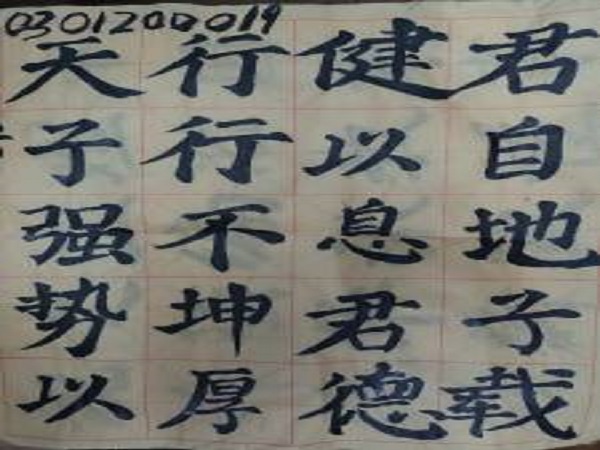 0301200019
天行健君
子行以自
强不息地
势坤君子
以厚德载